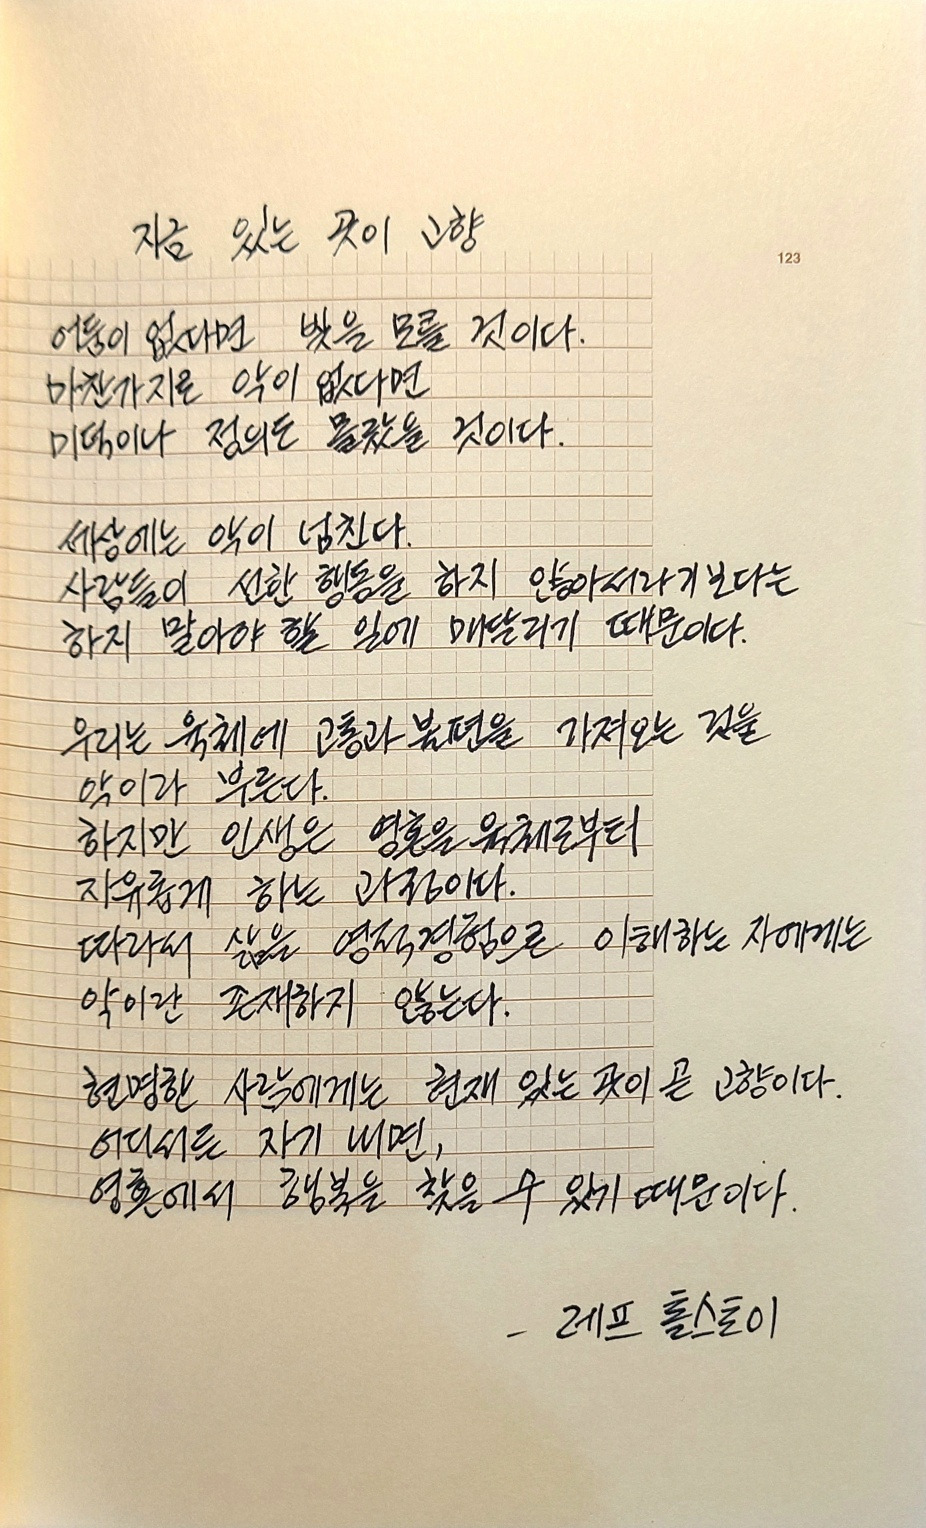 지금 있는 곳이 고향
123
어둠이 없다면 빛을 모를 것이다.
마찬가지로 악이 없다면
미덕이나 정의도 몰랐을 것이다.
세상에는 악이 넘친다.
사람들이 선한 행동을 하지 않아서라기보다는
하지 말아야 할 일에 매달리기 때문이다.
우리는 육체에 고통과 불편을 가져오는 것을
악이라 부른다.
하지만 인생은 영혼을 육체로부터
자유롭게 하는 과정이다.
따라서 삶을 영적경험으로 이해하는 자에게는
악이란 존재하지 않는다.
현명한 사람에게는 현재 있는 곳이 곧 고향이다.
어디서든 자기 내면,
영혼에서 행복을 찾을 수 있기 때문이다.
- 레프 톨스토이